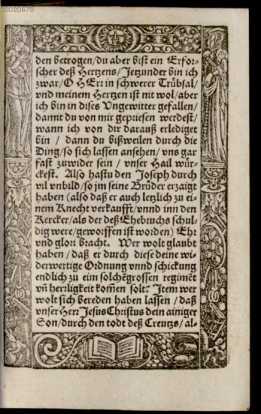 den betrogen/du aber bist ein Erfor-
scher deß Hertzens/Jetzunder bin ich
zwar/O HErr in schwerer Trübsal/
vnd meinem Hertzen ist nit wol/aber
ich bin in dises Vngewitter gefallen/
damit du von mir gepriesen werdest/
wann ich von dir darauß erlediget
bin / dann du bißweilen durch die
Ding/so sich lassen ansehen/vns gar
fast zuwider sein / vnser Hail wür-
ckest. Also hastu den Joseph durch
vil vnbild/so jm seine Brüder erzaigt
haben (also daß er auch letzlich zu ei-
nem Knecht verkaufft/vnnd inn den
Kercker/als der deß Ehebruchs schul-
dig were/geworffen ist worden) Ehr
vnd glori bracht. Wer wolt glaubt
haben / daß er durch diese deine wi-
derwertige Ordnung vnnd schickung
endlich zu eim solchē grossen regimēt
vñ herrligkeit kom̃en solt? Item wer
wolt sich bereden haben lassen / daß
vnser Herr Jesus Christus dein ainiger
Son/durch den todt deß Creutzs/al-